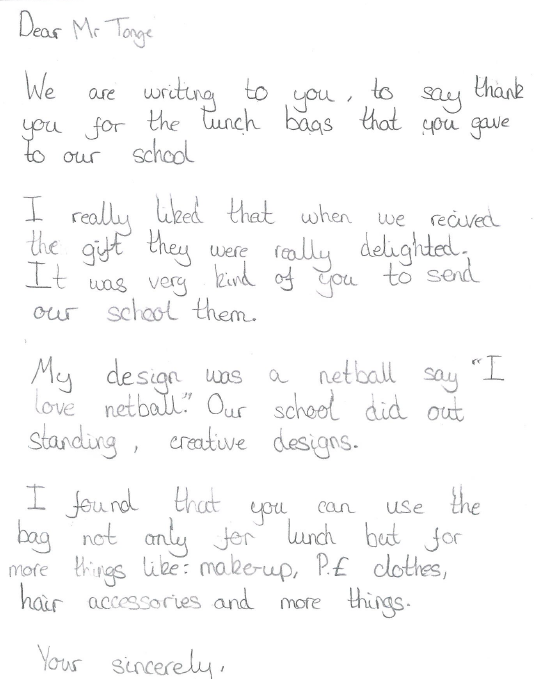 Dear Mr Tonge
We are writing to you, to say thank
you for the lunch bags that you gave
to our school
I really liked that when we recived
the gift they were really delighted.
It was very kind of you to send
our school them.
My design was a netball say "I
love netball." Our school did out
standing, creative designs.
I found that you can use the
bag not only for lunch but for
more things like: make-up, P.E clothes,
hair accessories and more things.
Your sincerely,